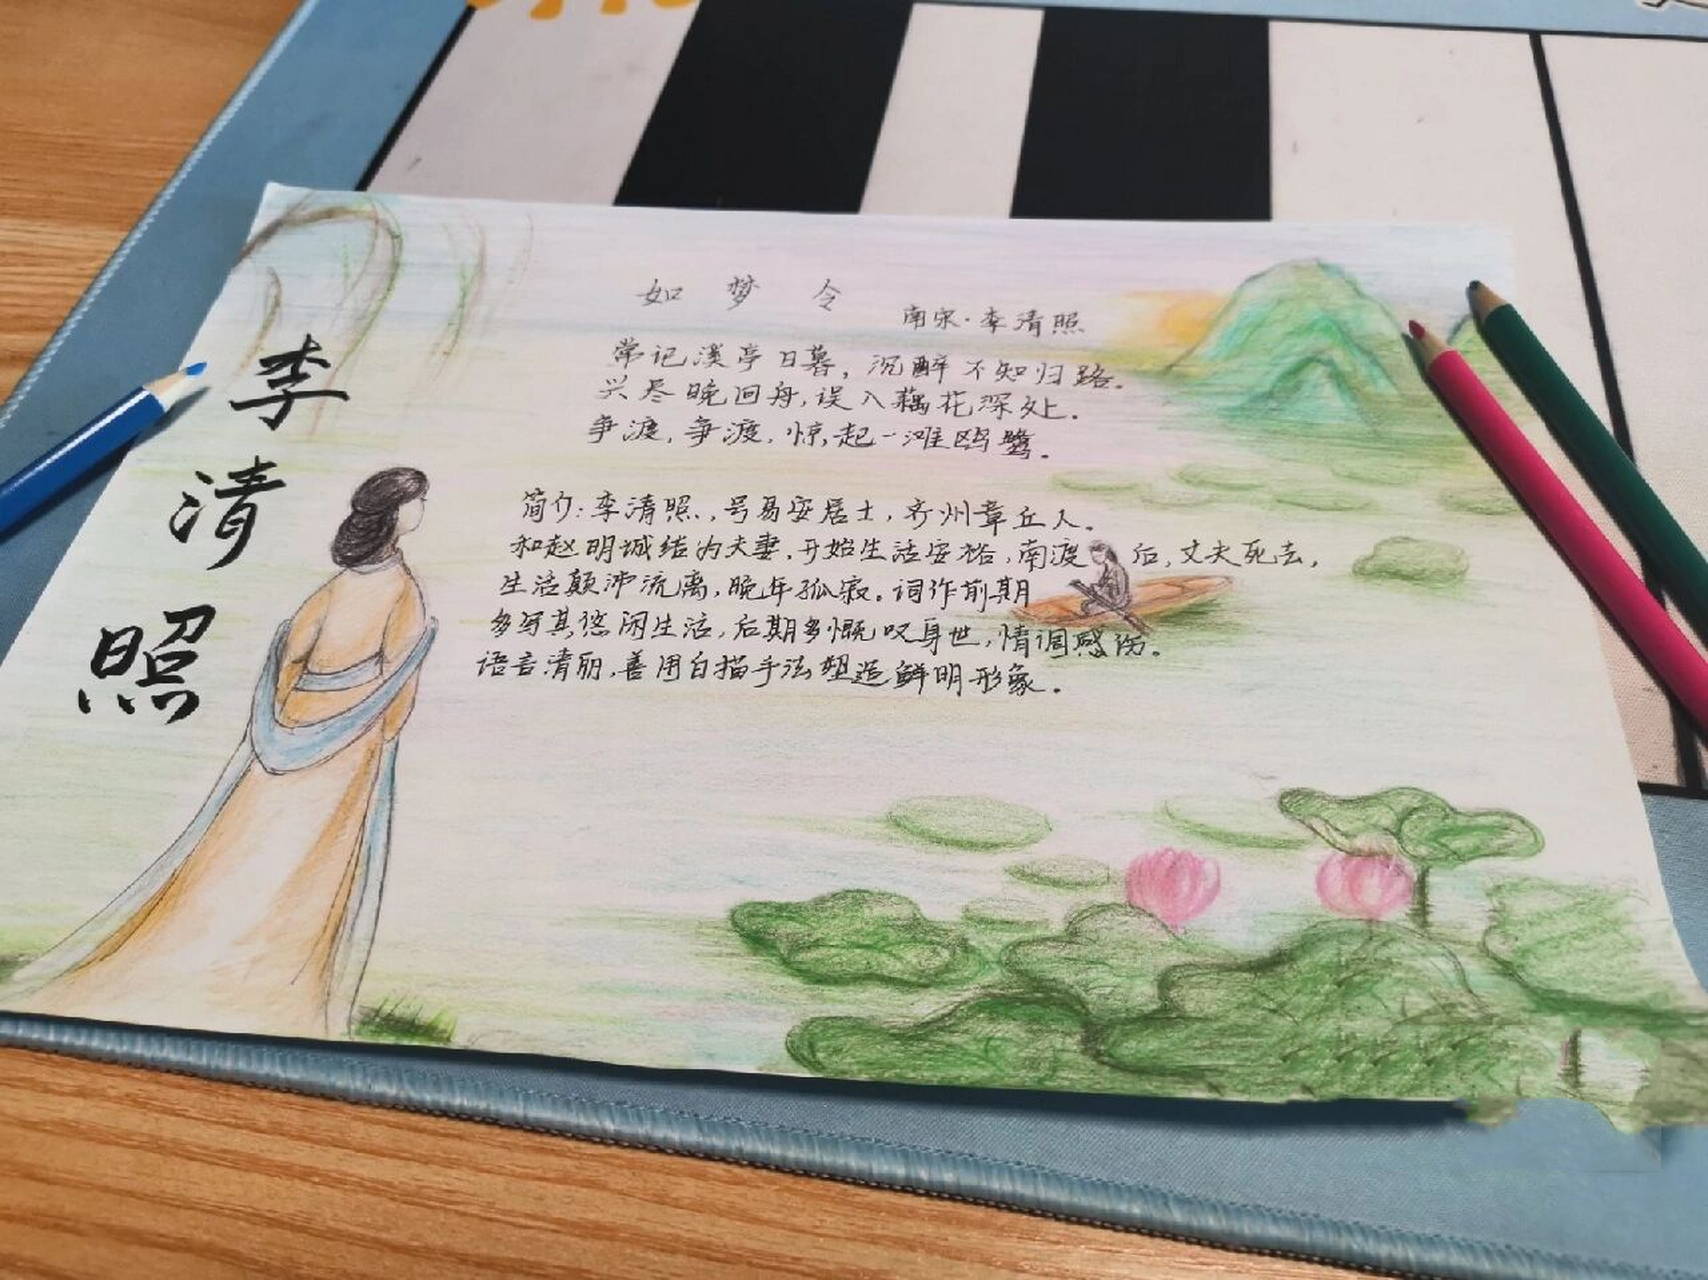 李清照
如梦令
南宋·李清照
常记溪亭日暮，沉醉不知归路。
兴尽晚回舟，误入藕花深处。
争渡，争渡，惊起一滩鸥鹭。
简介：李清照，号易安居士，齐州章丘人。
和赵明诚结为夫妻，开始生活安裕，南渡后，丈夫死去，
生活颠沛流离，晚年孤寂。词作前期
多写其悠闲生活，后期多慨叹身世，情调感伤。
语言清丽，善用白描手法塑造鲜明形象。